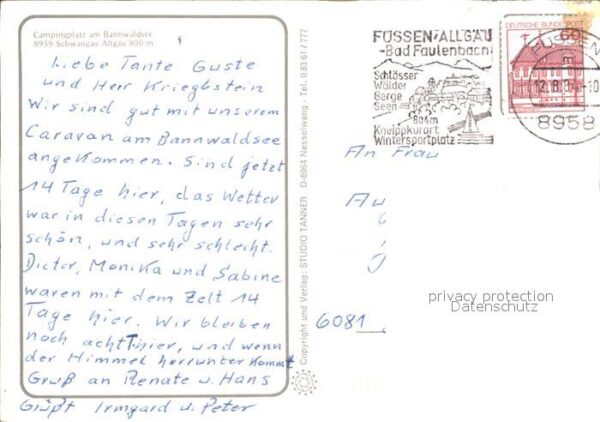 Campingplatz am Bannwaldsee
8959 Schwangau Allgäu 800 m
Liebe Tante Guste
und Herr Kriegbstein
Wir sind gut mit unserem
Caravan am Bannwaldsee
angekommen. Sind jetzt
14 Tage hier, das Wetter
war in diesen Tagen sehr
schön, und sehr schlecht.
Dieter, Monika und Sabine
waren mit dem Zelt 14
Tage hier. Wir bleiben
noch acht T hier, und wenn
der Himmel herrunter kommt
Gruß an Renate u. Hans
Grüßt Irmgard u. Peter
Copyright und Verlag: STUDIO TANNER D-8964 Nesselwang · Tel. 0 83 61 / 777
FÜSSEN/ALLGÄU
-Bad Faulenbach
Schlösser
Wälder
Berge
Seen
804m
Kneippkurort
Wintersportplatz
DEUTSCHE BUNDESPOST
60
FÜSSEN
12.8.8 -10
8958
An Frau
Au
6081
privacy protection
Datenschutz